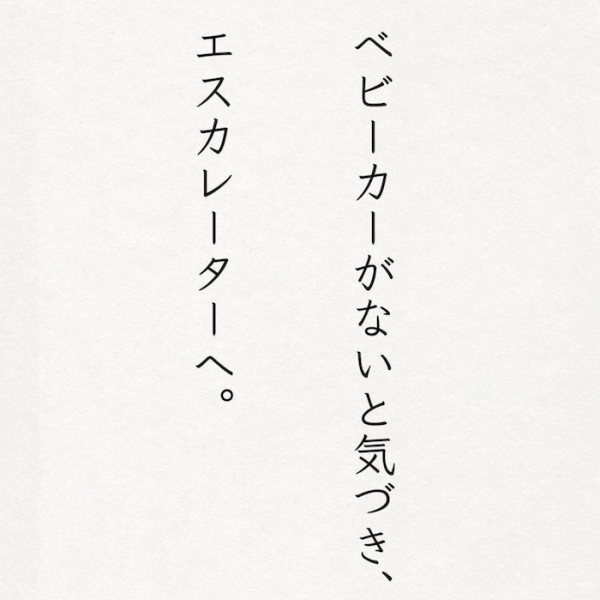 ベビーカーがないと気づき、
エスカレーターへ。